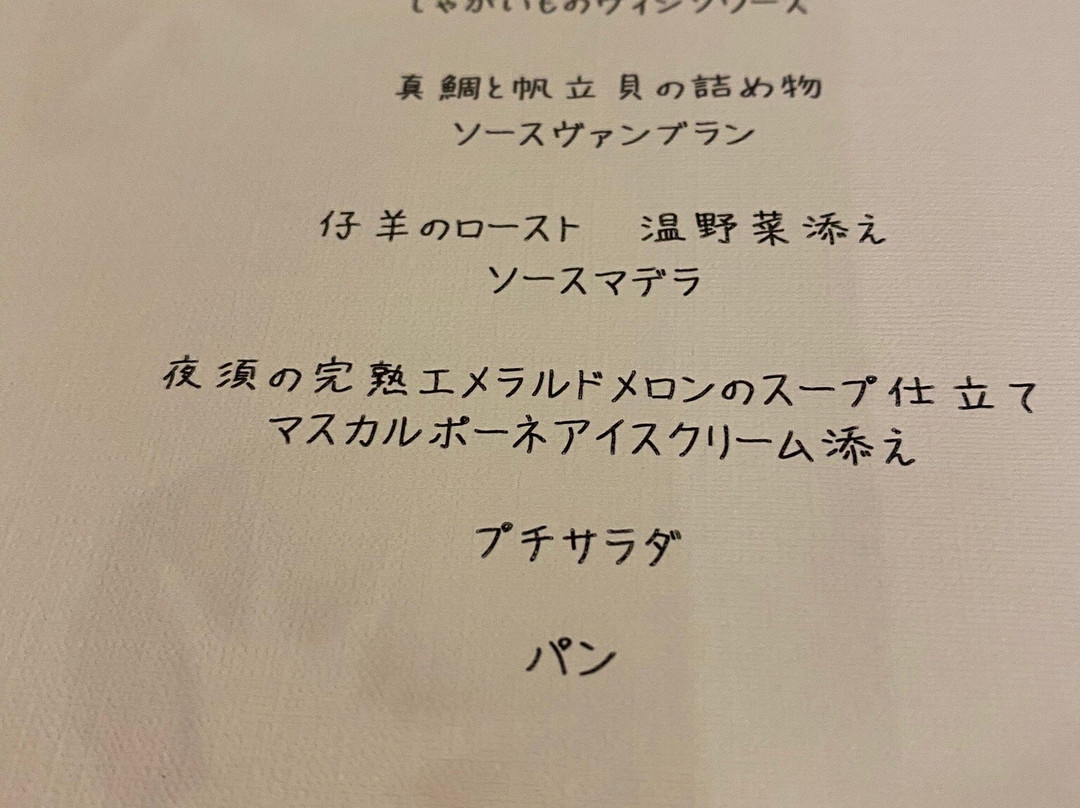 じゃがいものヴィシソワーズ
真鯛と帆立貝の詰め物
ソースヴァンブラン
仔羊のロースト　温野菜添え
ソースマデラ
夜須の完熟エメラルドメロンのスープ仕立て
マスカルポーネアイスクリーム添え
プチサラダ
パン